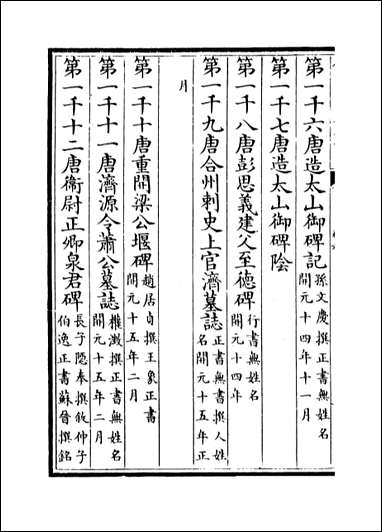 第一千六唐造太山御碑記孫文慶撰正書無姓名開元十四年十一月
第一千七唐造太山御碑陰
第一千八唐彭思義建父至德碑行書無姓名開元十四年
第一千九唐合州刺史上官濟墓誌正書無書撰人姓名開元十五年正
月
第一千十唐重開梁公堰碑趙居貞撰王象正書開元十五年二月
第一千十一唐濟源令蕭公墓誌權澈撰正書無姓名開元十五年二月
第一千十二唐衞尉正卿泉君碑長子隱奉撰敘仲子伯逸正書蘇晉撰銘